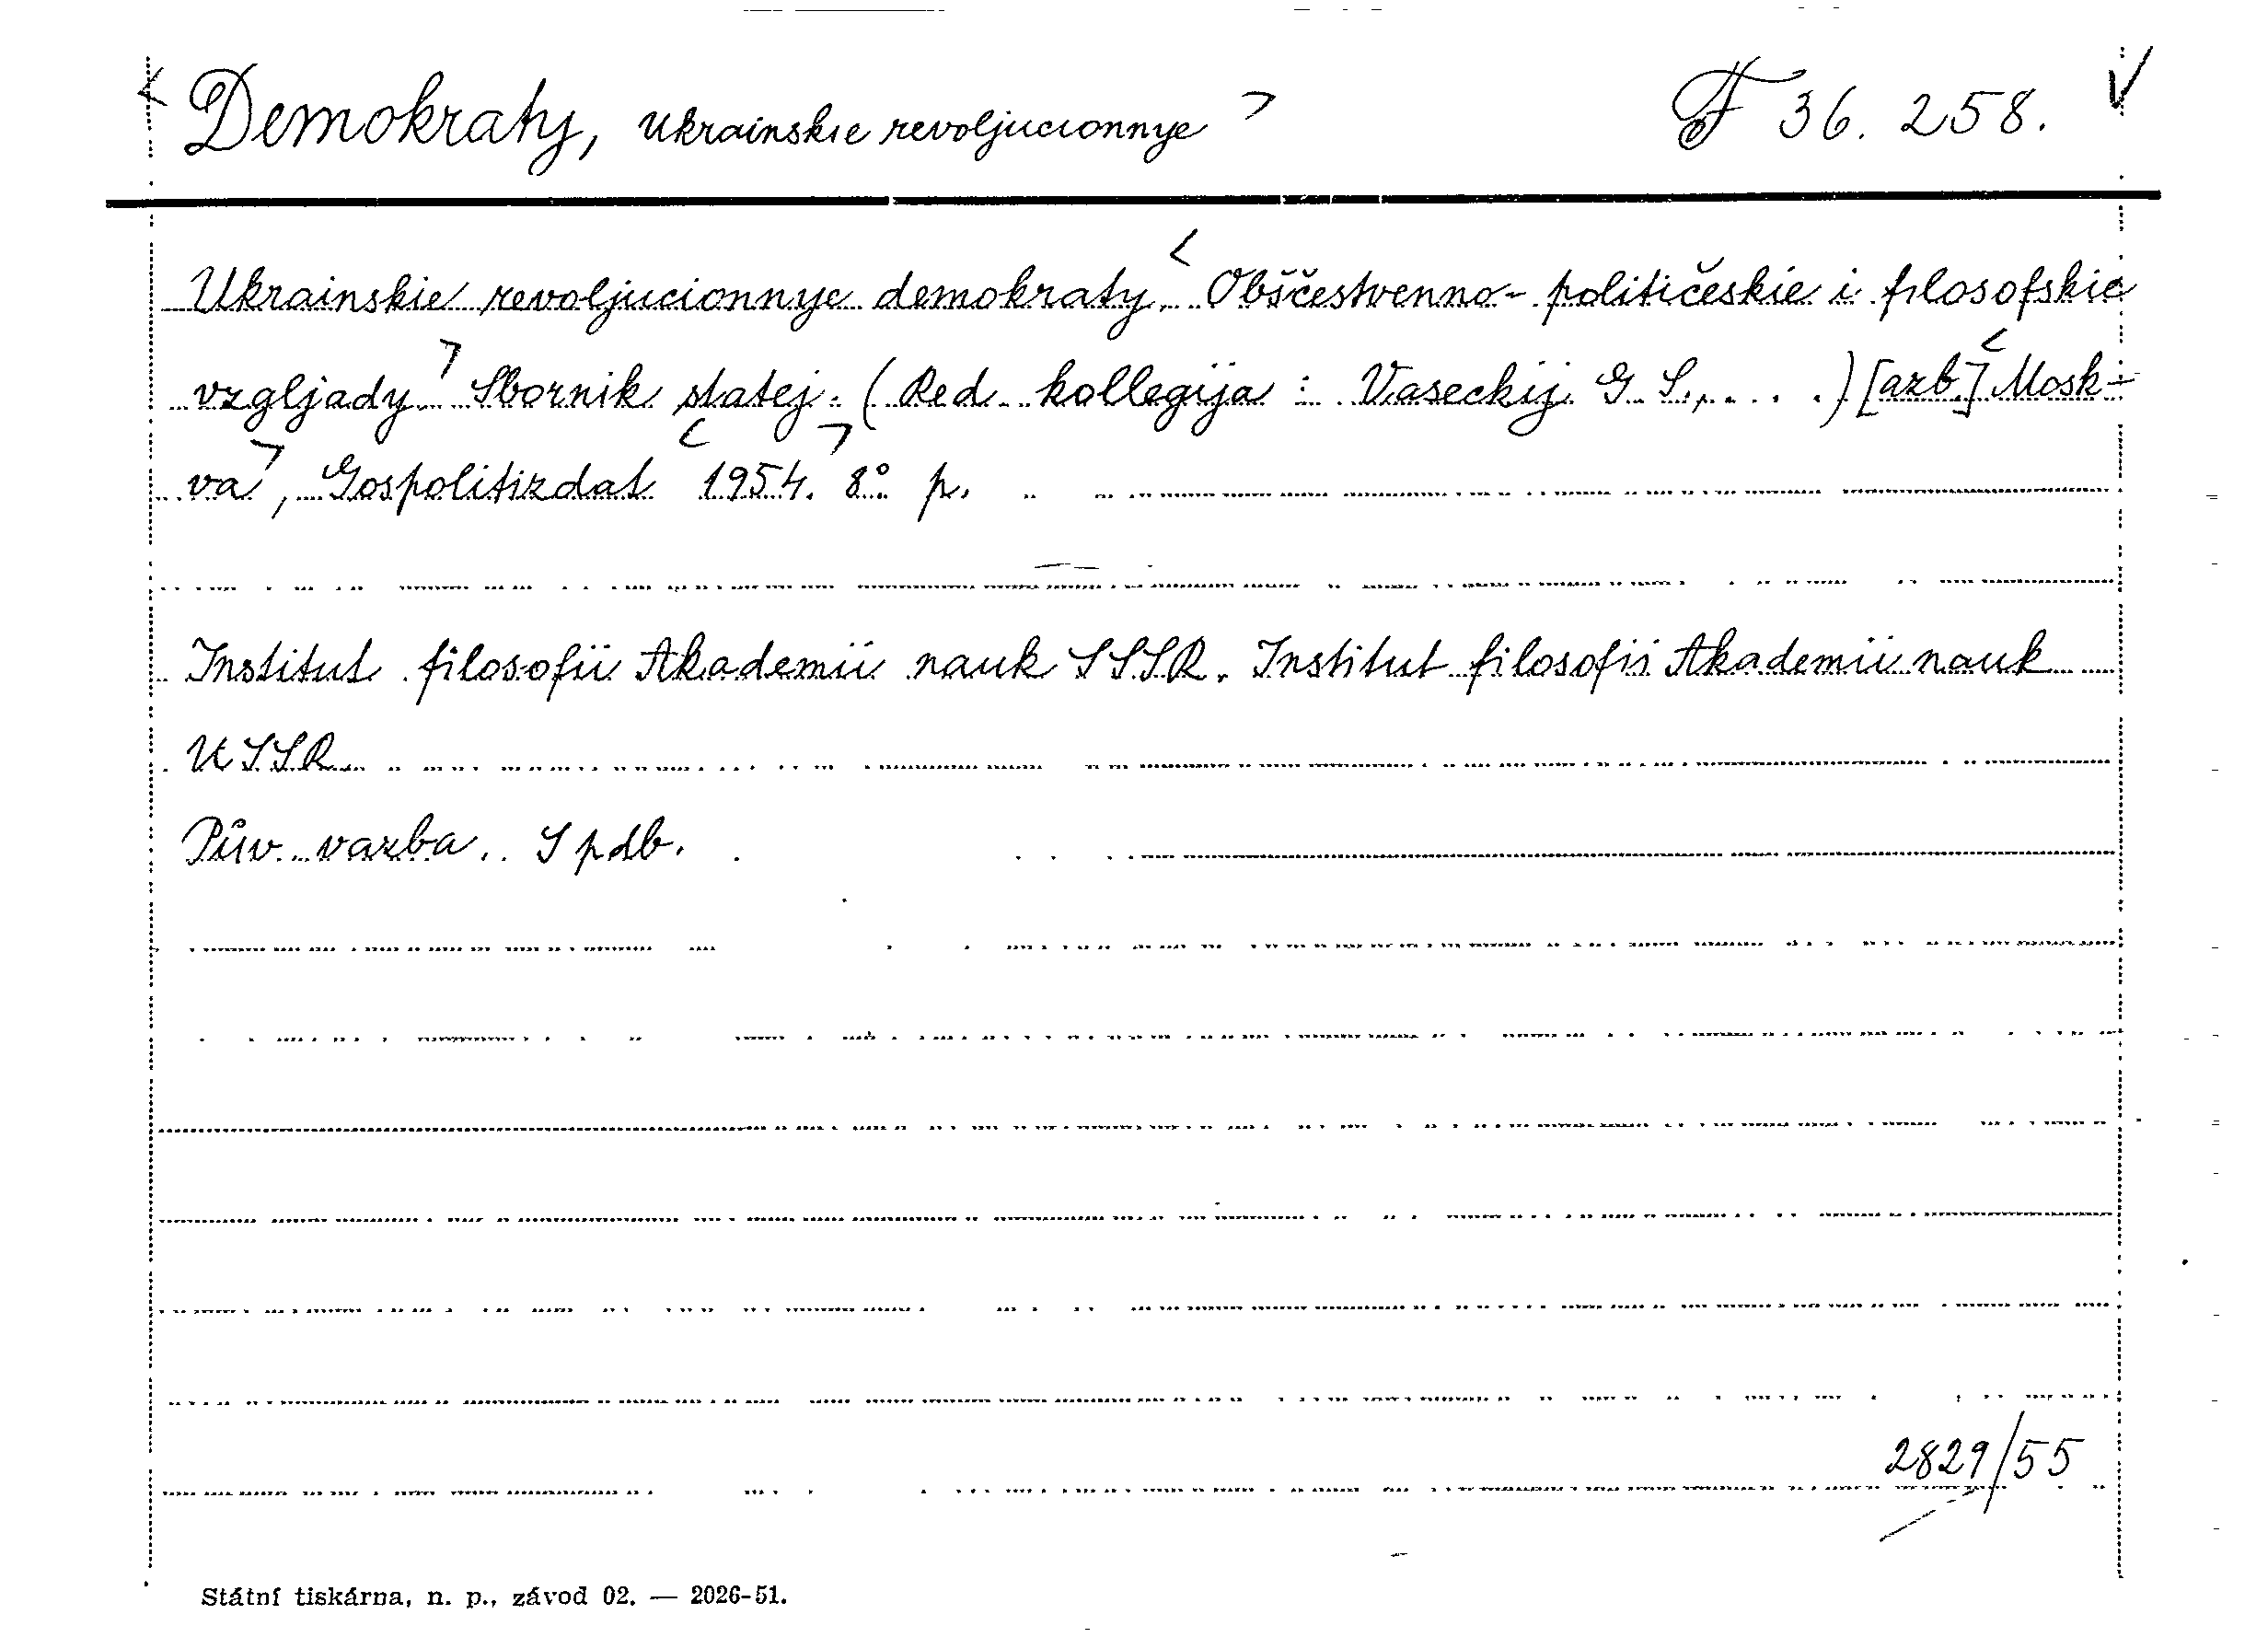 < Demokraty, ukrainskie revoljucionnye > F 36. 258. √
Ukrainskie revoljucionnye demokraty. < Obščestvenno-političeskie i filosofskie
vzgljady > Sbornik statej. (Red. kollegija : Vaseckij G. S., . . . .) [azb.] < Mosk-
va >, Gospolitizdat < 1954. > 8° p.
Institut filosofii Akademii nauk SSSR. Institut filosofii Akademii nauk
USSR.
Pův. vazba. S pdb.
2829/55
Státní tiskárna, n. p., závod 02. — 2026-51.